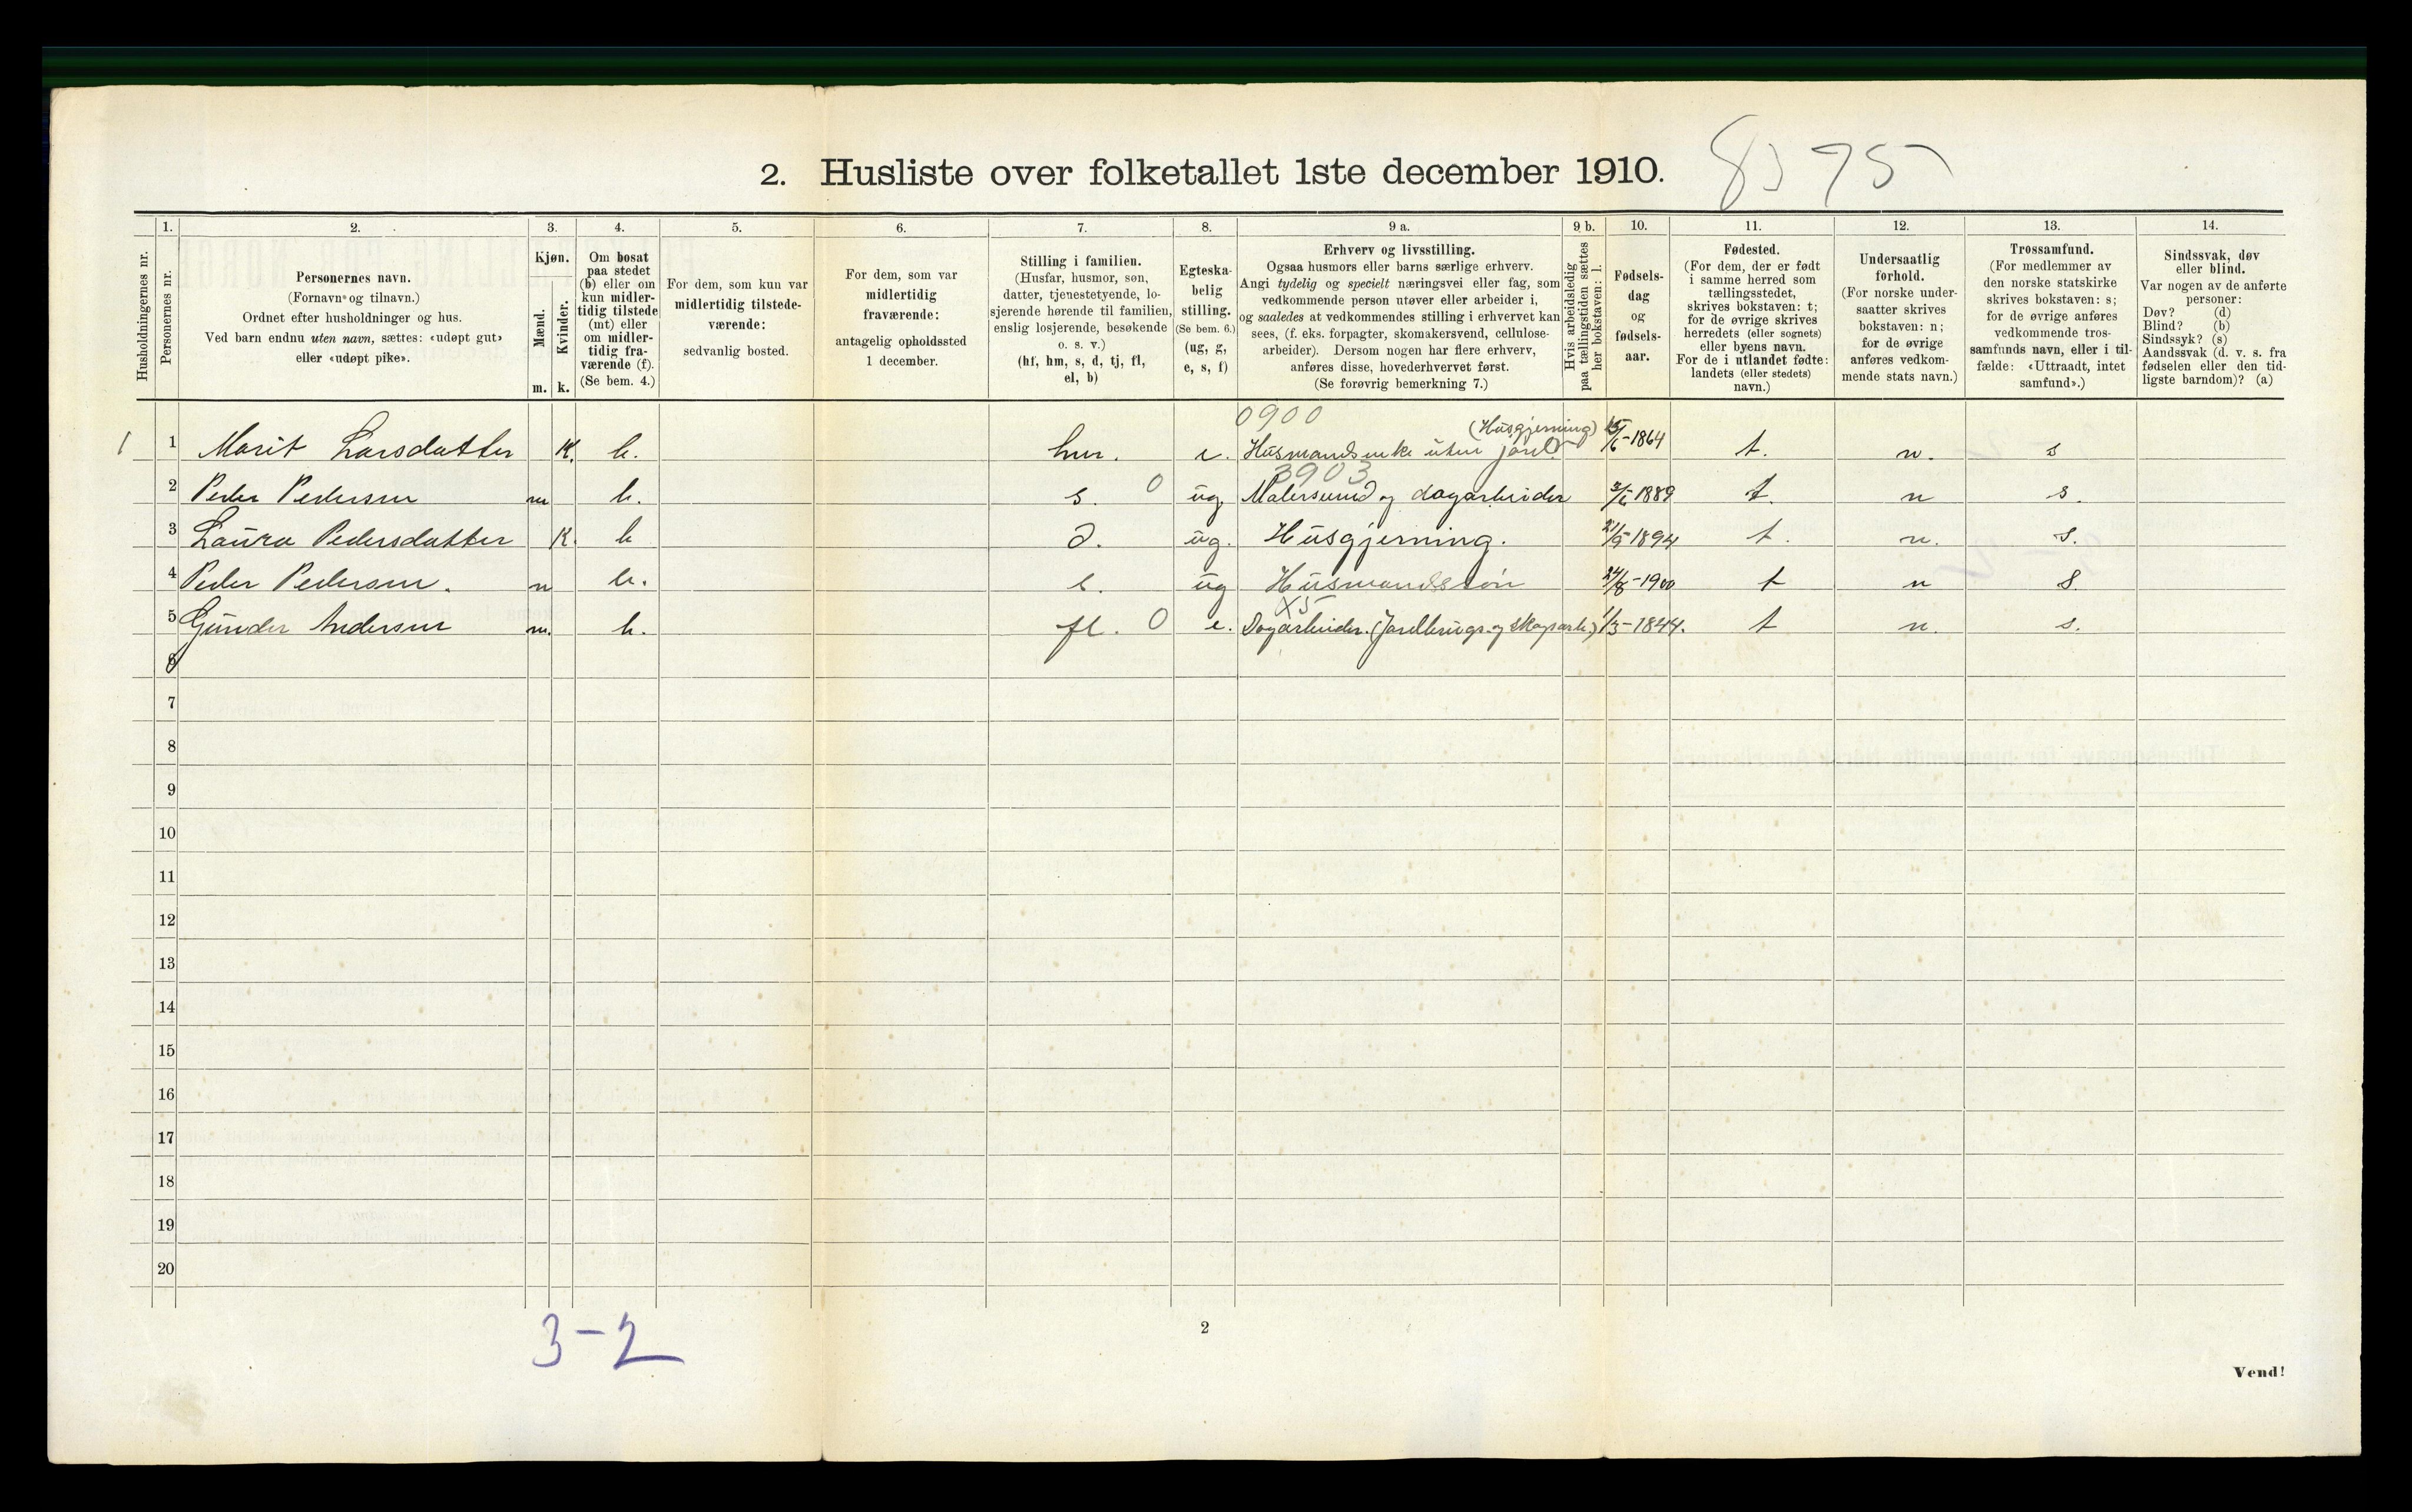 2. Husliste over folketallet 1ste december 1910.
Husholdningernes nr.
1.
Personernes nr.
2.
Personernes navn.
(Fornavn og tilnavn.)
Ordnet efter husholdninger og hus.
Ved barn endnu uten navn, sættes: «udøpt gut»
eller «udøpt pike».
3.
Kjøn.
Mænd.
m.
Kvinder.
k.
4.
Om bosat
paa stedet
(b) eller om
kun midler-
tidig tilstede
(mt) eller
om midler-
tidig fra-
værende (f).
(Se bem. 4.)
5.
For dem, som kun var
midlertidig tilstede-
værende:
sedvanlig bosted.
6.
For dem, som var
midlertidig
fraværende:
antagelig opholdssted
1 december.
7.
Stilling i familien.
(Husfar, husmor, søn,
datter, tjenestetyende, lo-
sjerende hørende til familien,
enslig losjerende, besøkende
o. s. v.)
(hf, hm, s, d, tj, fl,
el, b)
8.
Egteska-
belig
stilling.
(Se bem. 6.)
(ug, g,
e, s, f)
9 a.
Erhverv og livsstilling.
Ogsaa husmors eller barns særlige erhverv.
Angi tydelig og specielt næringsvei eller fag, som
vedkommende person utøver eller arbeider i,
og saaledes at vedkommendes stilling i erhvervet kan
sees, (f. eks. forpagter, skomakersvend, cellulose-
arbeider). Dersom nogen har flere erhverv,
anføres disse, hovederhvervet først.
(Se forøvrig bemerkning 7.)
9 b.
Hvis arbeidsledig
paa tællingstiden sættes
her bokstaven: l.
10.
Fødsels-
dag
og
fødsels-
aar.
11.
Fødested.
(For dem, der er født
i samme herred som
tællingsstedet,
skrives bokstaven: t;
for de øvrige skrives
herredets (eller sognets)
eller byens navn.
For de i utlandet fødte:
landets (eller stedets)
navn.)
12.
Undersaatlig
forhold.
(For norske under-
saatter skrives
bokstaven: n;
for de øvrige
anføres vedkom-
mende stats navn.)
13.
Trossamfund.
(For medlemmer av
den norske statskirke
skrives bokstaven: s;
for de øvrige anføres
vedkommende tros-
samfunds navn, eller i til-
fælde: «Uttraadt, intet
samfund».)
14.
Sindssvak, døv
eller blind.
Var nogen av de anførte
personer:
Døv? (d)
Blind? (b)
Sindssyk? (s)
Aandssvak (d. v. s. fra
fødselen eller den tid-
ligste barndom)? (a)
0900
(Husgjerning)
1 1 Marit Larsdatter K. b. hm. e. Husmandsenke uten jord 1864 t. n. s
3903
2 Peder Pedersen m b. s. 0 ug Malersvend og dagarbeider 1889 t. n s.
3 Laura Pedersdatter K. b d. ug. Husgjerning. 1894 t. n. s.
4 Peder Pedersen. m b. s. ug Husmandssøn 24/8-1900 t n s.
X5
5 Gunder Andersen m. b. fl. 0 e. Dagarbeider. (Jordbrugs- og skogsarb.) 1/3-1844. t n. s.
6
7
8
9
10
11
12
13
14
15
16
17
18
19
20
3-2
2
Vend!